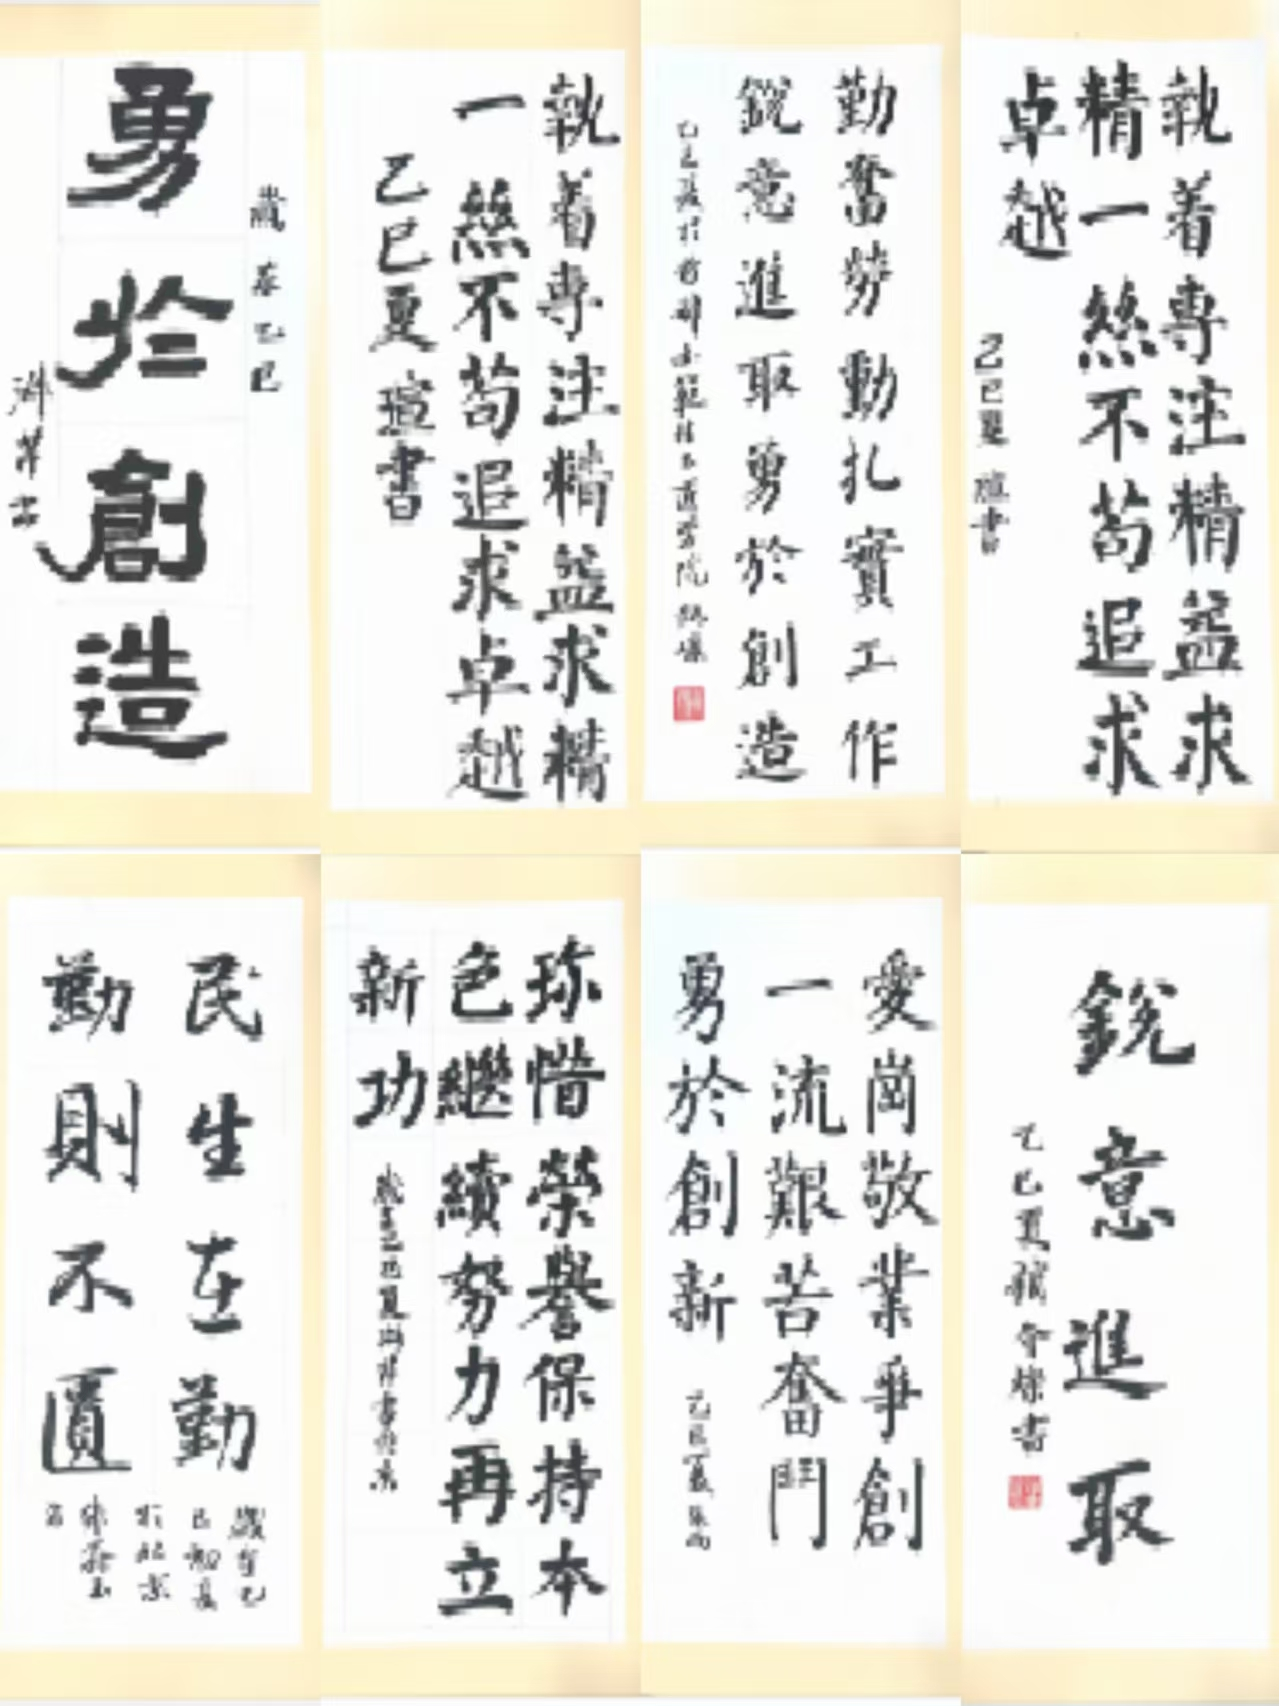 歲春乙巳
勇於創造
執着專注精益求精
一絲不苟追求卓越
乙巳夏瑄書
勤奮勞動扎實工作
銳意進取勇於創造
執着專注精益求
精一絲不苟追求
卓越
乙巳夏 瑄書
民生在勤
勤則不匱
歲在乙
巳初夏
於北京
珍惜榮譽保持本
色繼續努力再立
新功
愛崗敬業爭創
一流艱苦奮鬥
勇於創新
銳意進取